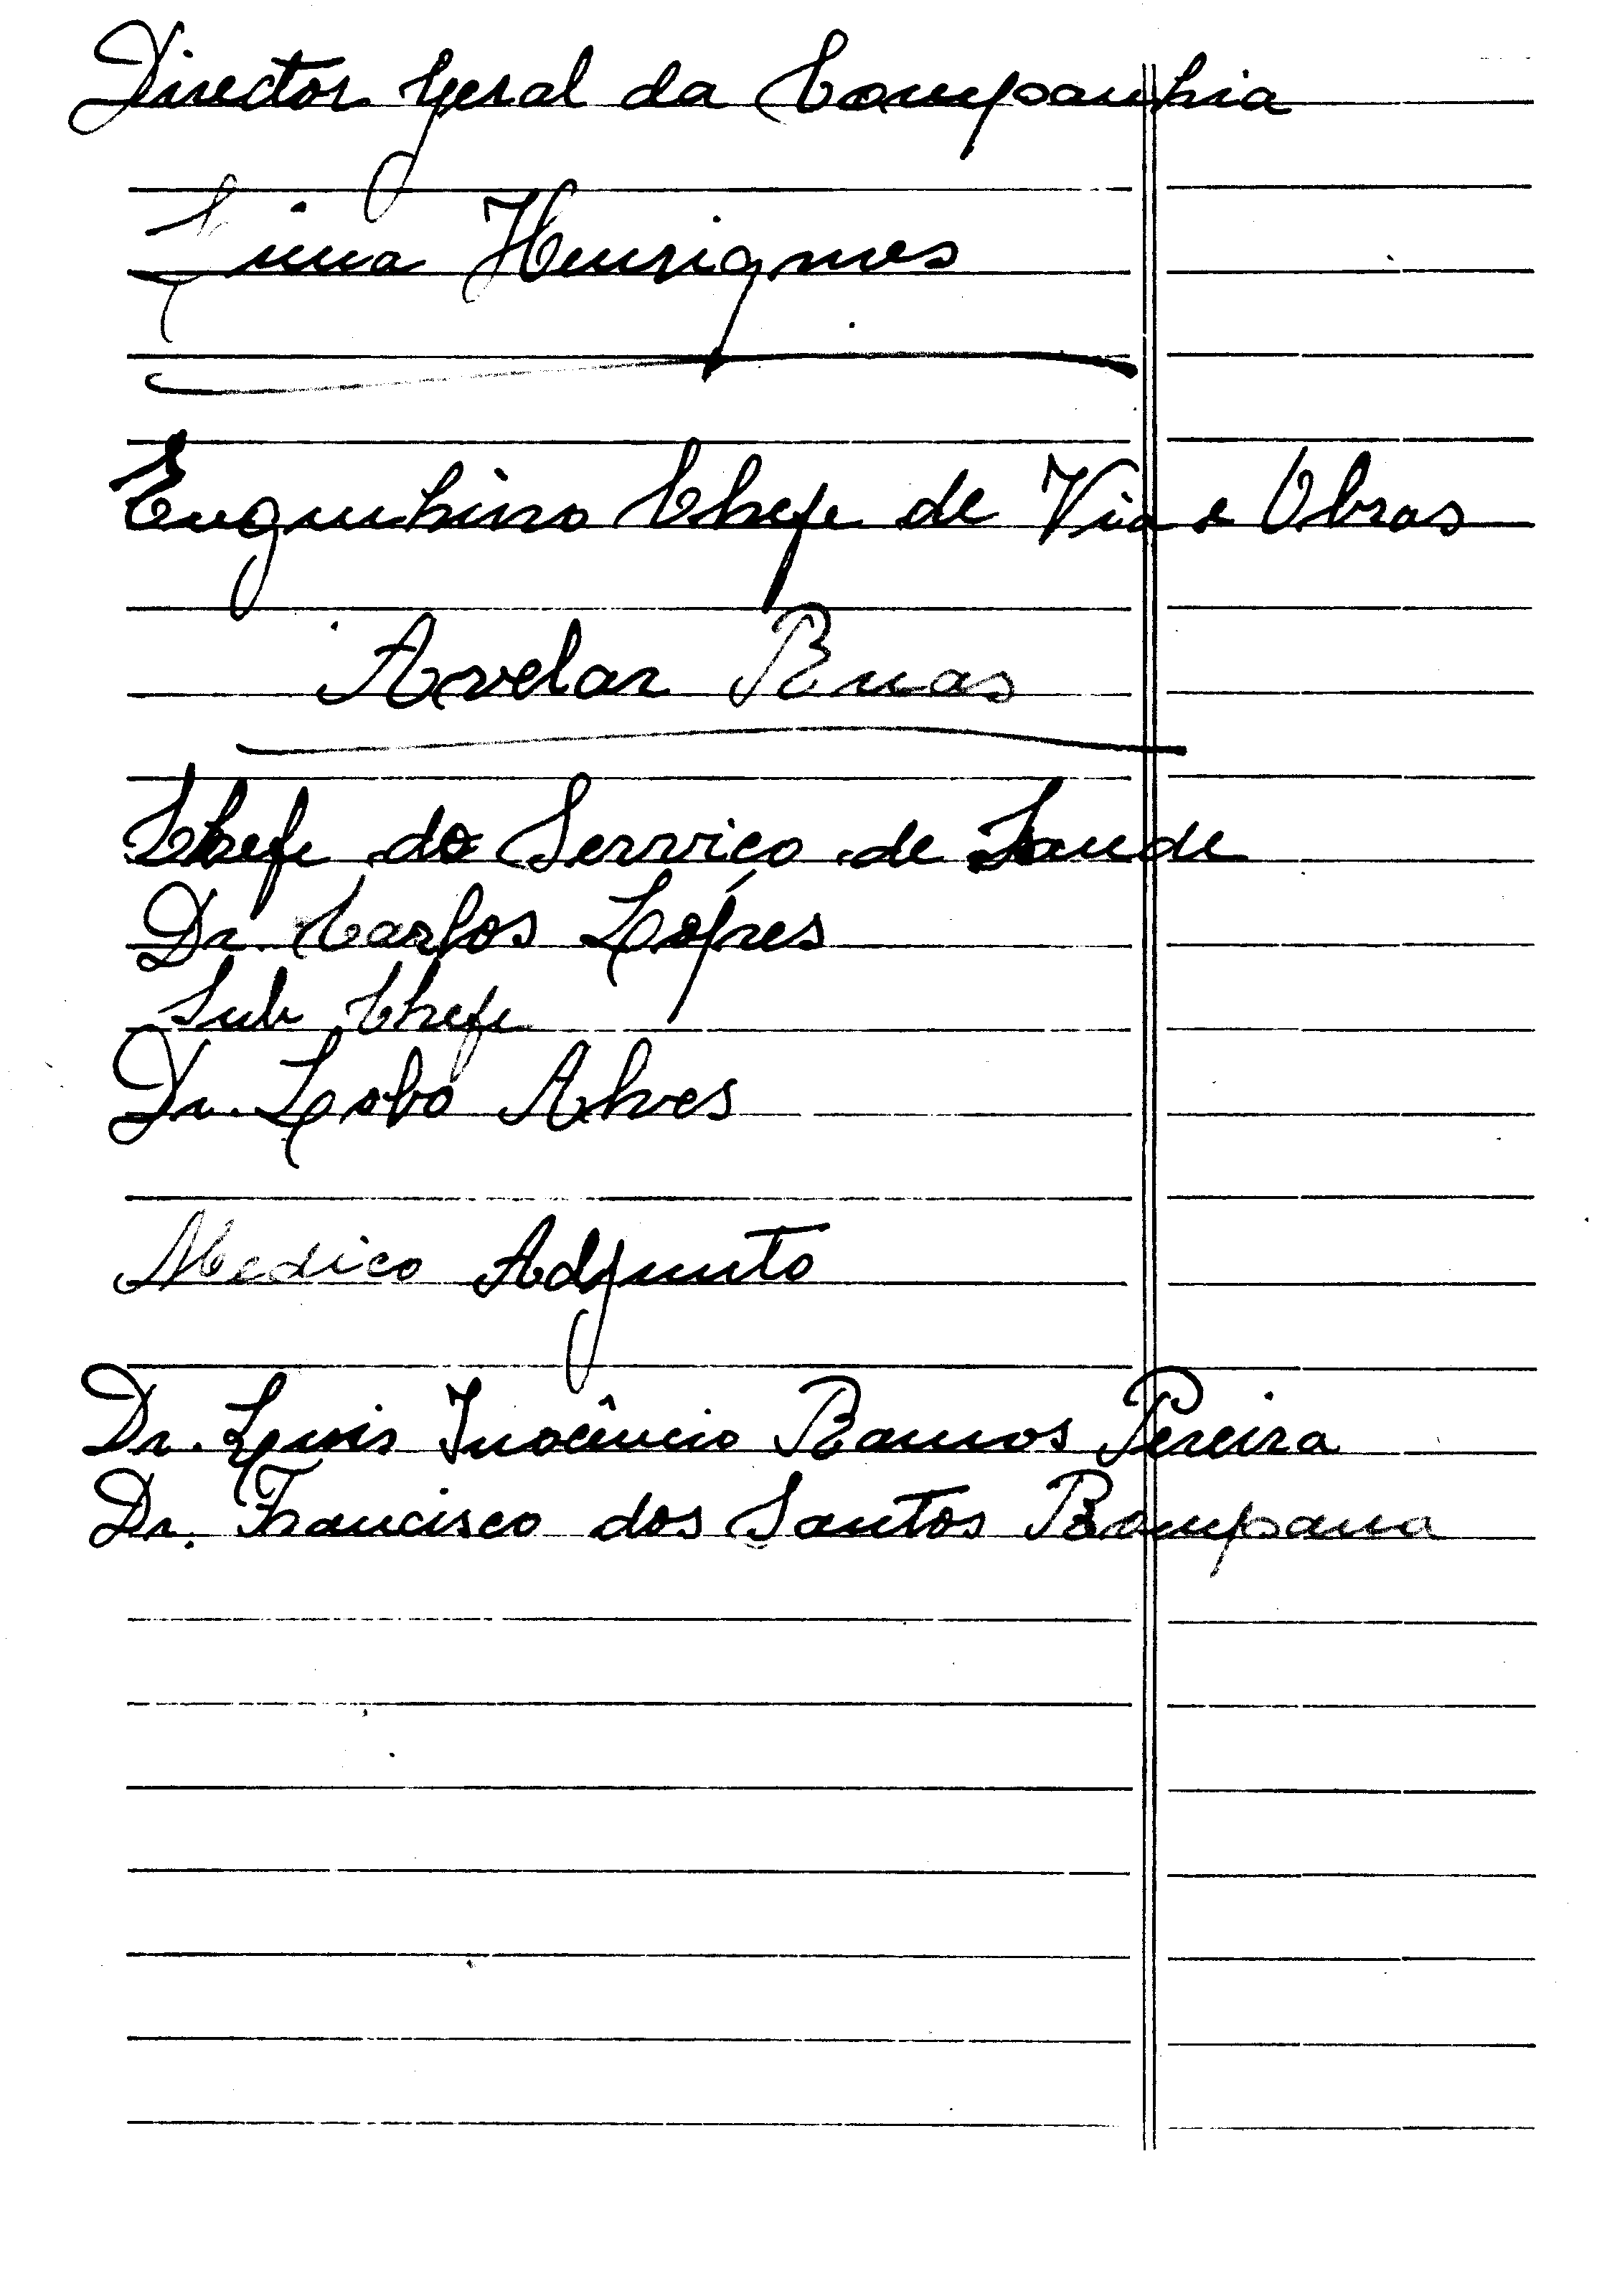 Director Geral da Companhia
Lima Henriques
Engenhiro Chefe de Via e Obras
Avelar Ruas
Chefe do Serviço de Saude
Dr. Carlos Lópes
Sub Chefe
Dr. Lobo Alves
Medico Adjunto
Dr. Luis Inocêncio Ramos Pereira
Dr. Francisco dos Santos Rompana